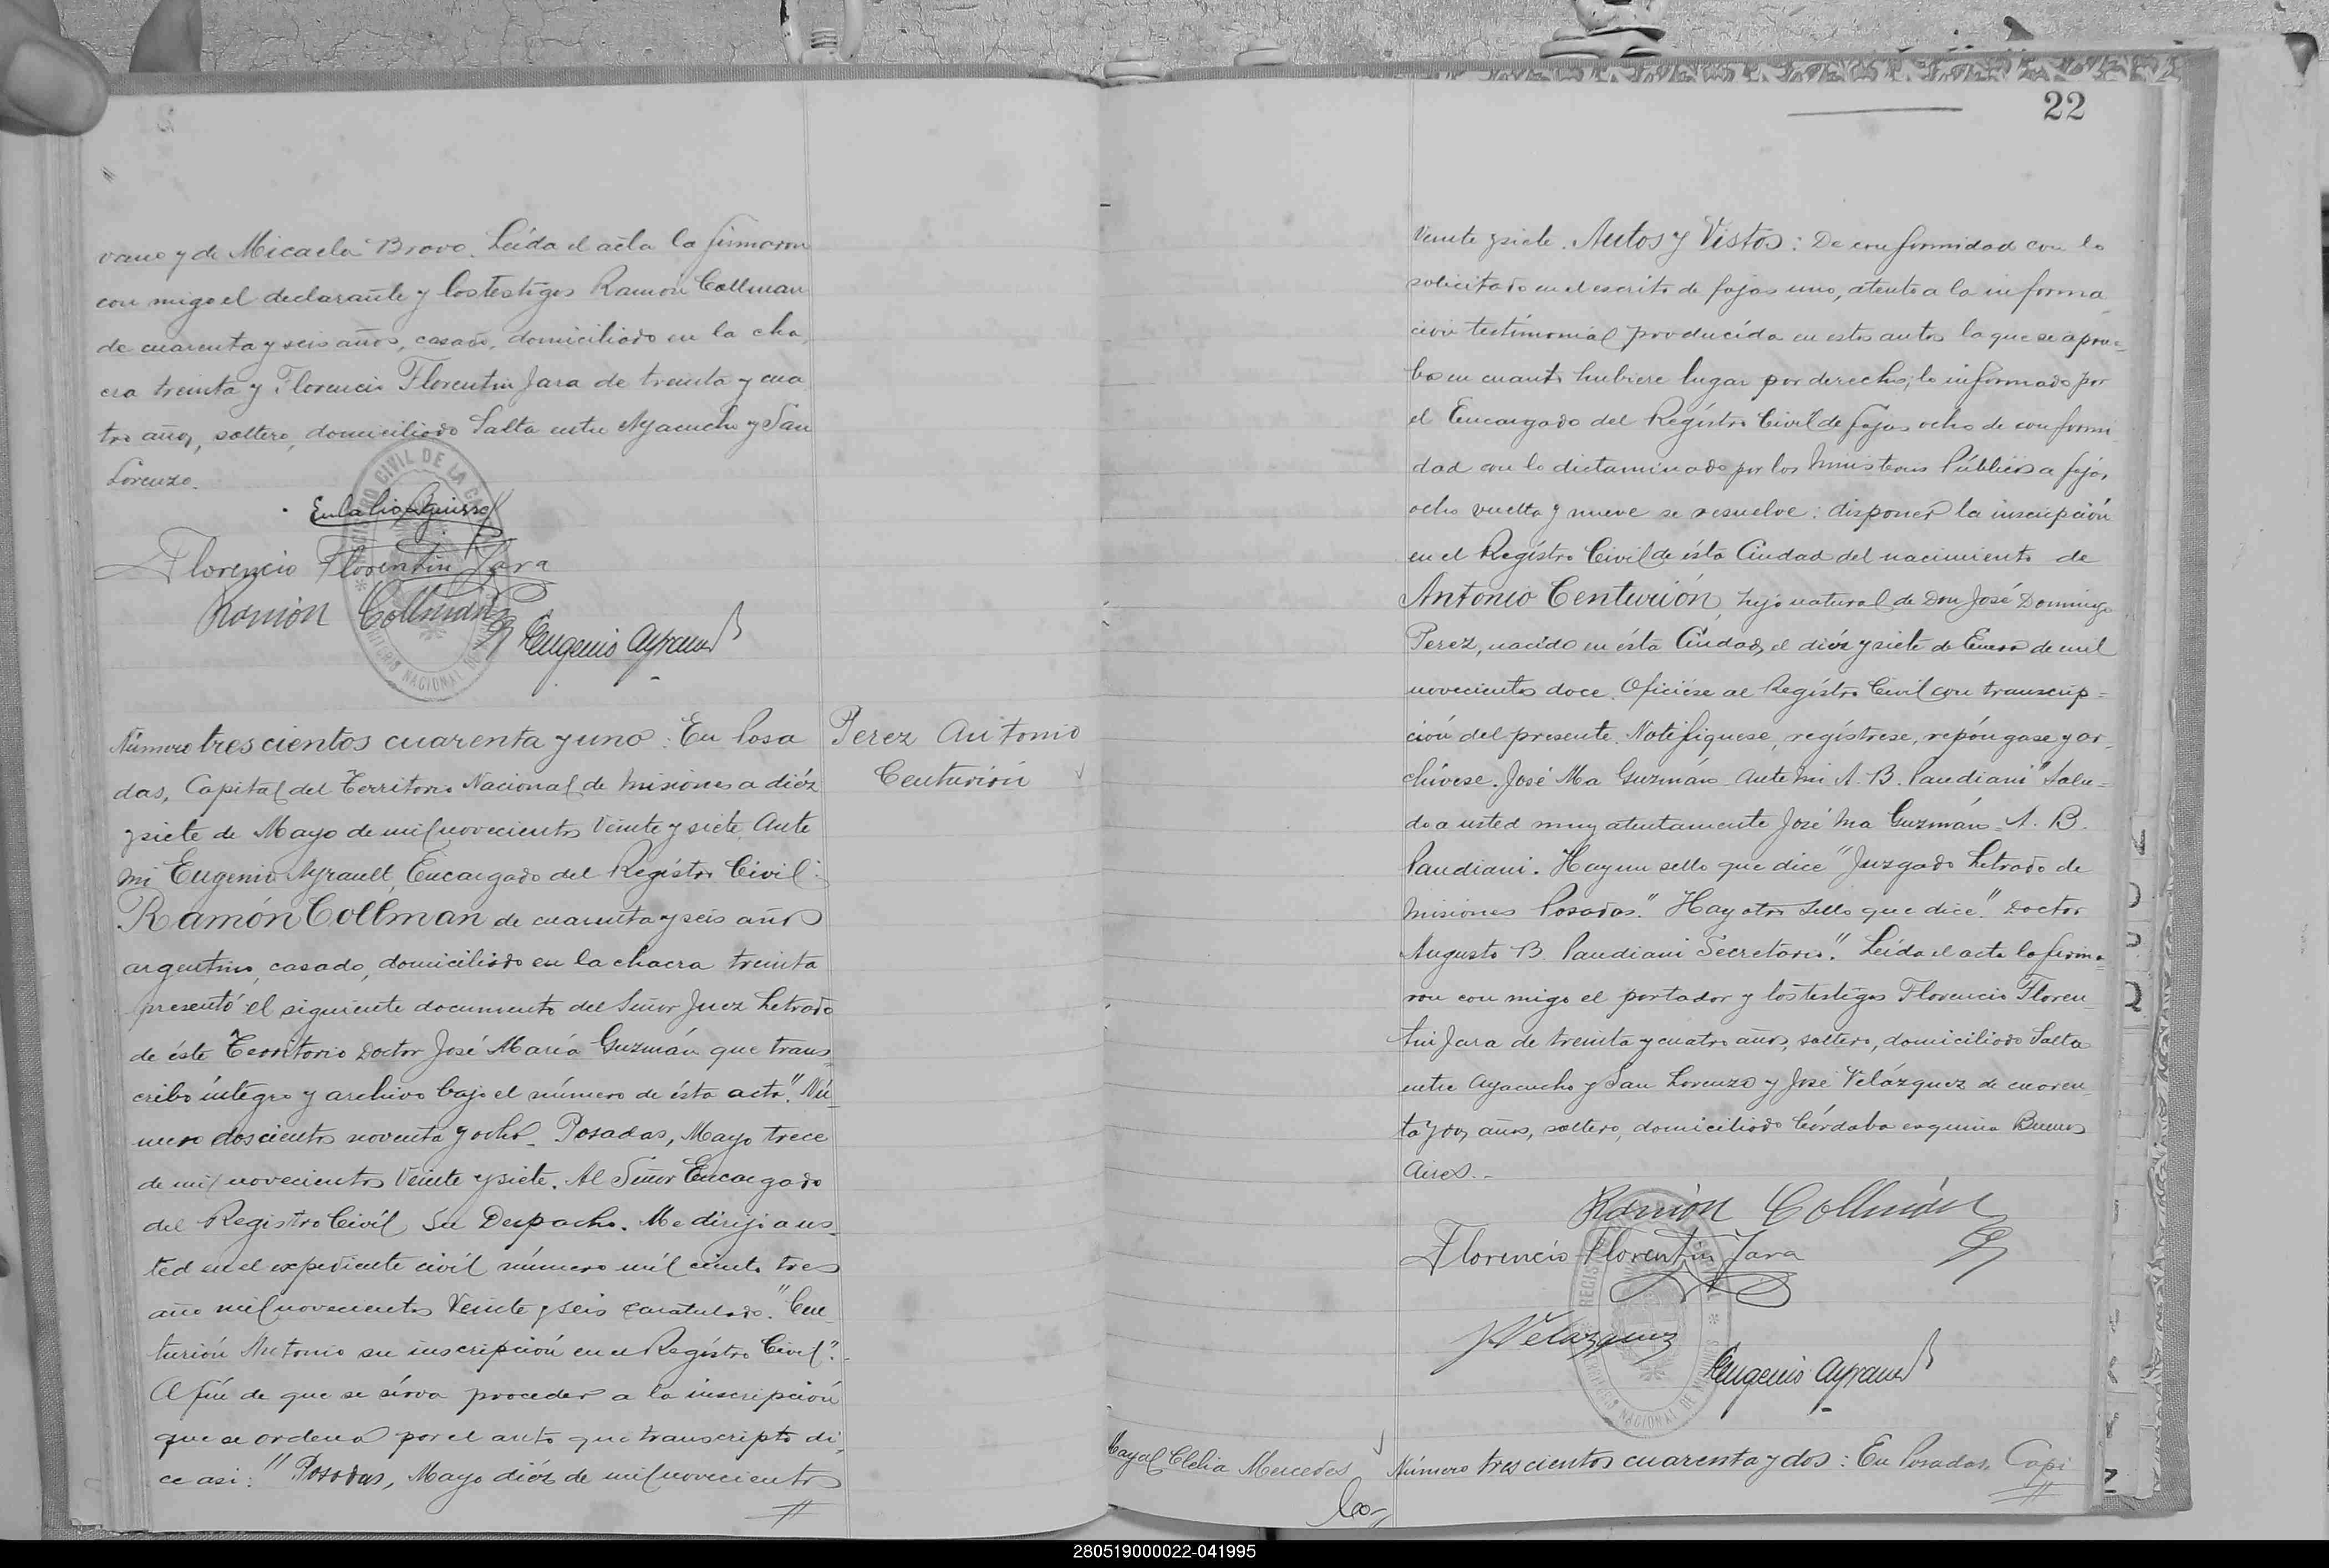 22
vano y de Micaela Bravo. Leída el acta la firmaron
con migo el declarante y los testigos Ramón Collman
de cuarenta y seis años, casado, domiciliado en la cha
cra treinta y Florencio Florentin Jara de treinta y cua
tro años, soltero, domiciliado Salta entre Ayacucho y San
Lorenzo.
Florencio Florentin Jara
Ramón Collman
Eugenio Ayrault
Perez Antonio
Centurión
Número trescientos cuarenta y uno: En Posa
das, Capital del Territorio Nacional de Misiones a diéz
y siete de Mayo de mil novecientos veinte y siete. Ante
mi Eugenio Ayrault, Encargado del Registro Civil:
Ramón Collman de cuarenta y seis años
argentino, casado, domiciliado en la chacra treinta
presentó el siguiente documento del Señor Juez Letrado
de éste Territorio Doctor José María Guzmán que trans_
cribo íntegro y archivo bajo el número de ésta acta." Nú_
mero doscientos noventa y ocho_ Posadas, Mayo trece
de mil novecientos veinte y siete. Al Señor Encargado
del Registro Civil Su Despacho. Me dirijo a us_
ted en el expediente civil número mil ciento tres
año mil novecientos veinte y seis caratulado." Cen_
turión Antonio su inscripción en el Registro Civil".
A fin de que se sirva proceder a la inscripción
que se ordena por el auto que transcripto di_
ce asi: "Posadas, Mayo diéz de mil novecientos
veinte y siete. Autos y Vistos: De conformidad con lo
solicitado en el escrito de fojas uno, atento a la informa_
ción testimonial producída en estos autos la que se aprue_
ba en cuanto hubiere lugar por derecho; lo informado por
el Encargado del Registro Civil de fojas ocho de conformi
dad con lo dictaminado por los Ministerios Públicos a fojas
ocho vuelta y nueve se resuelve: disponer la inscripción
en el Registro Civil de ésta Ciudad del nacimiento de
Antonio Centurión, hijo natural de Don José Domingo
Perez, nacido en ésta Ciudad, el diéz y siete de Enero de mil
novecientos doce. Ofíciese al Registro Civil con transcrip=
ción del presente. Notifíquese, regístrese, repóngase y ar_
chívese. José Ma Guzmán_ Ante mi A. B. Pandiani" Salu=
do a usted muy atentamente José Ma Guzmán_ A. B.
Pandiani. Hay un sello que dice "Juzgado Letrado de
Misiones Posadas." Hay otro sello que dice." Doctor
Augusto B. Pandiani Secretario." Leída el acta la firma=
ron con migo el portador y los testigos Florencio Floren_
tin Jara de treinta y cuatro años, soltero, domiciliado Salta
entre Ayacucho y San Lorenzo y José Velázquez de cuaren_
ta y dos años, soltero, domiciliado Córdoba esquina Buenos
Aires._
Ramón Collmán
Florencio Florentin Jara
J Velazquez
Eugenio Ayrault
Clelia Mercedes
Número trescientos cuarenta y dos: En Posadas, Capi
280519000022-041995